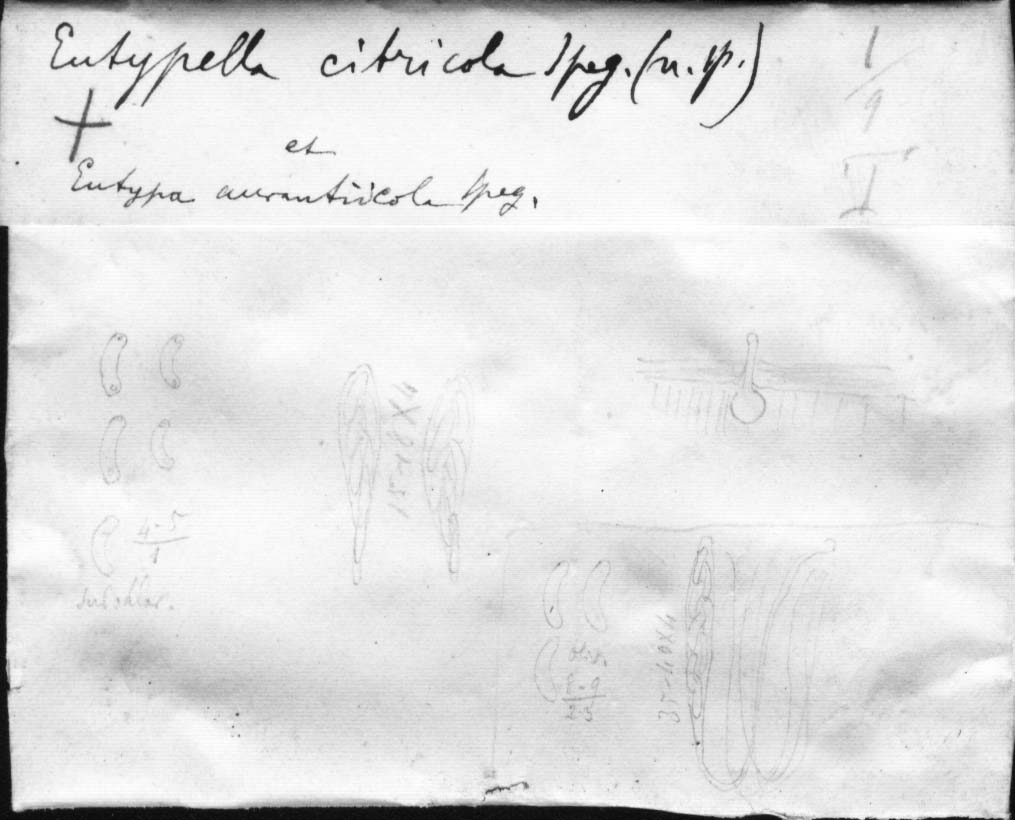 Eutypella citricola Speg. (n. sp.)
+
et
Eutypa aurantiicola Speg.
1
9
I
15-18X4
4-5
1
subchlor.
35-40X4